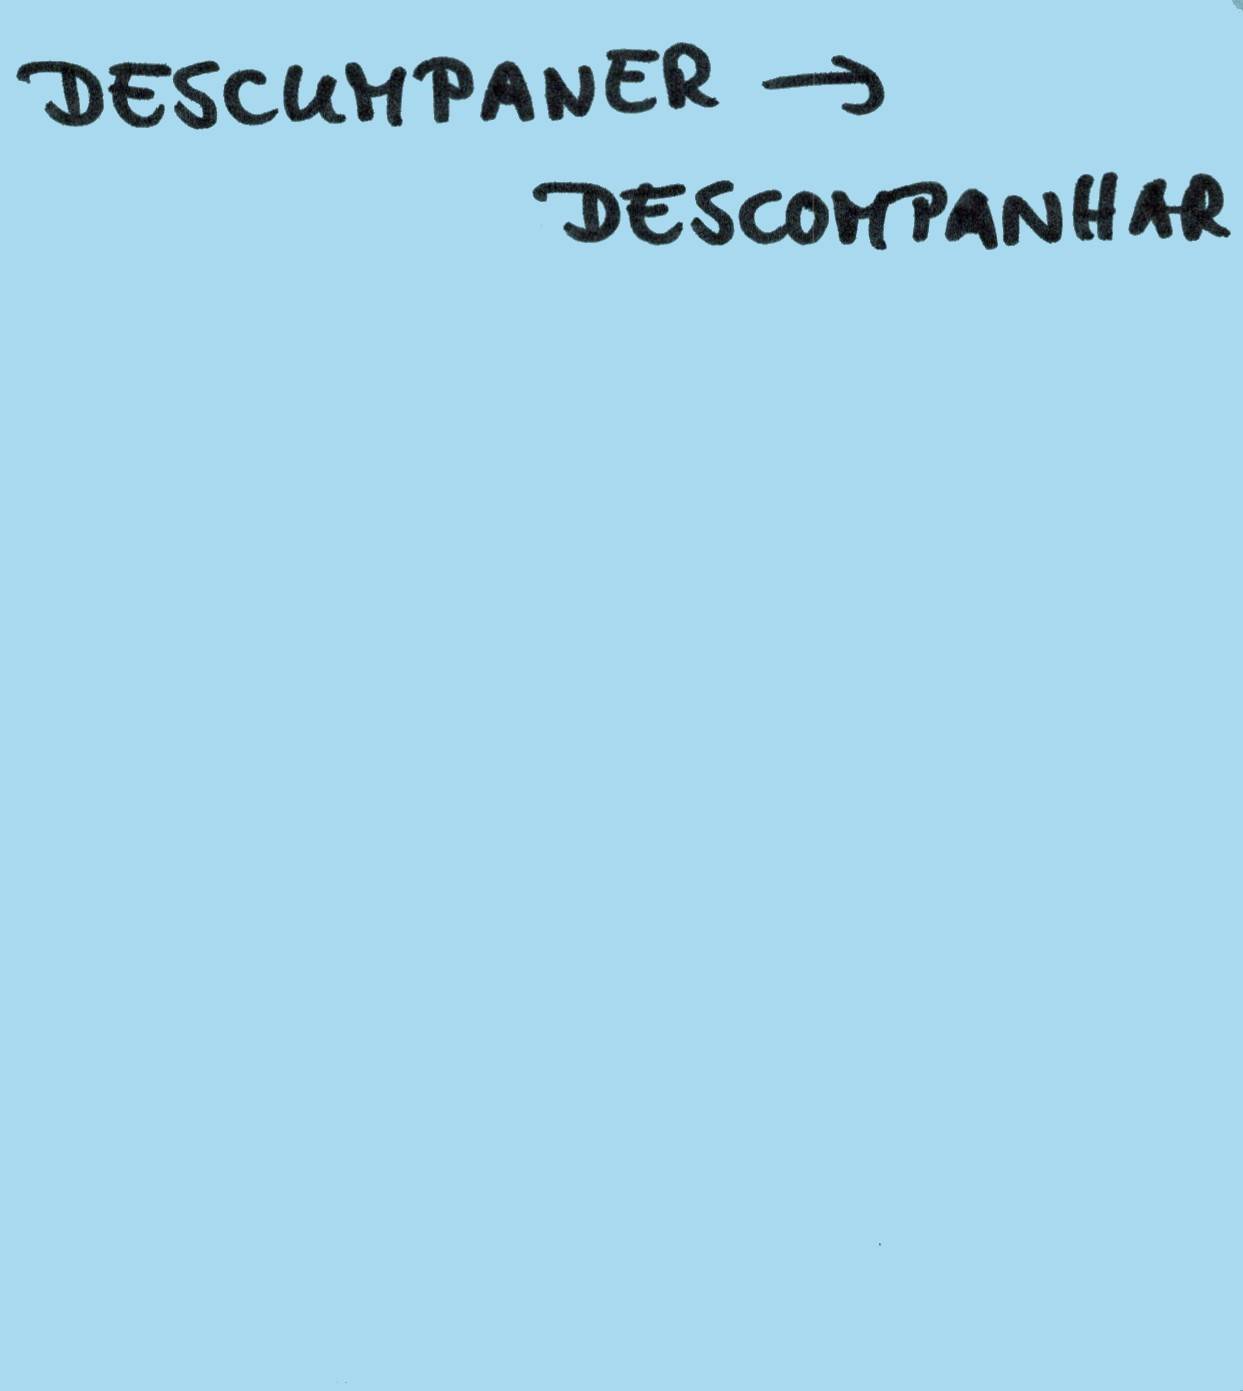 DESCUMPANER →
DESCOMPANHAR